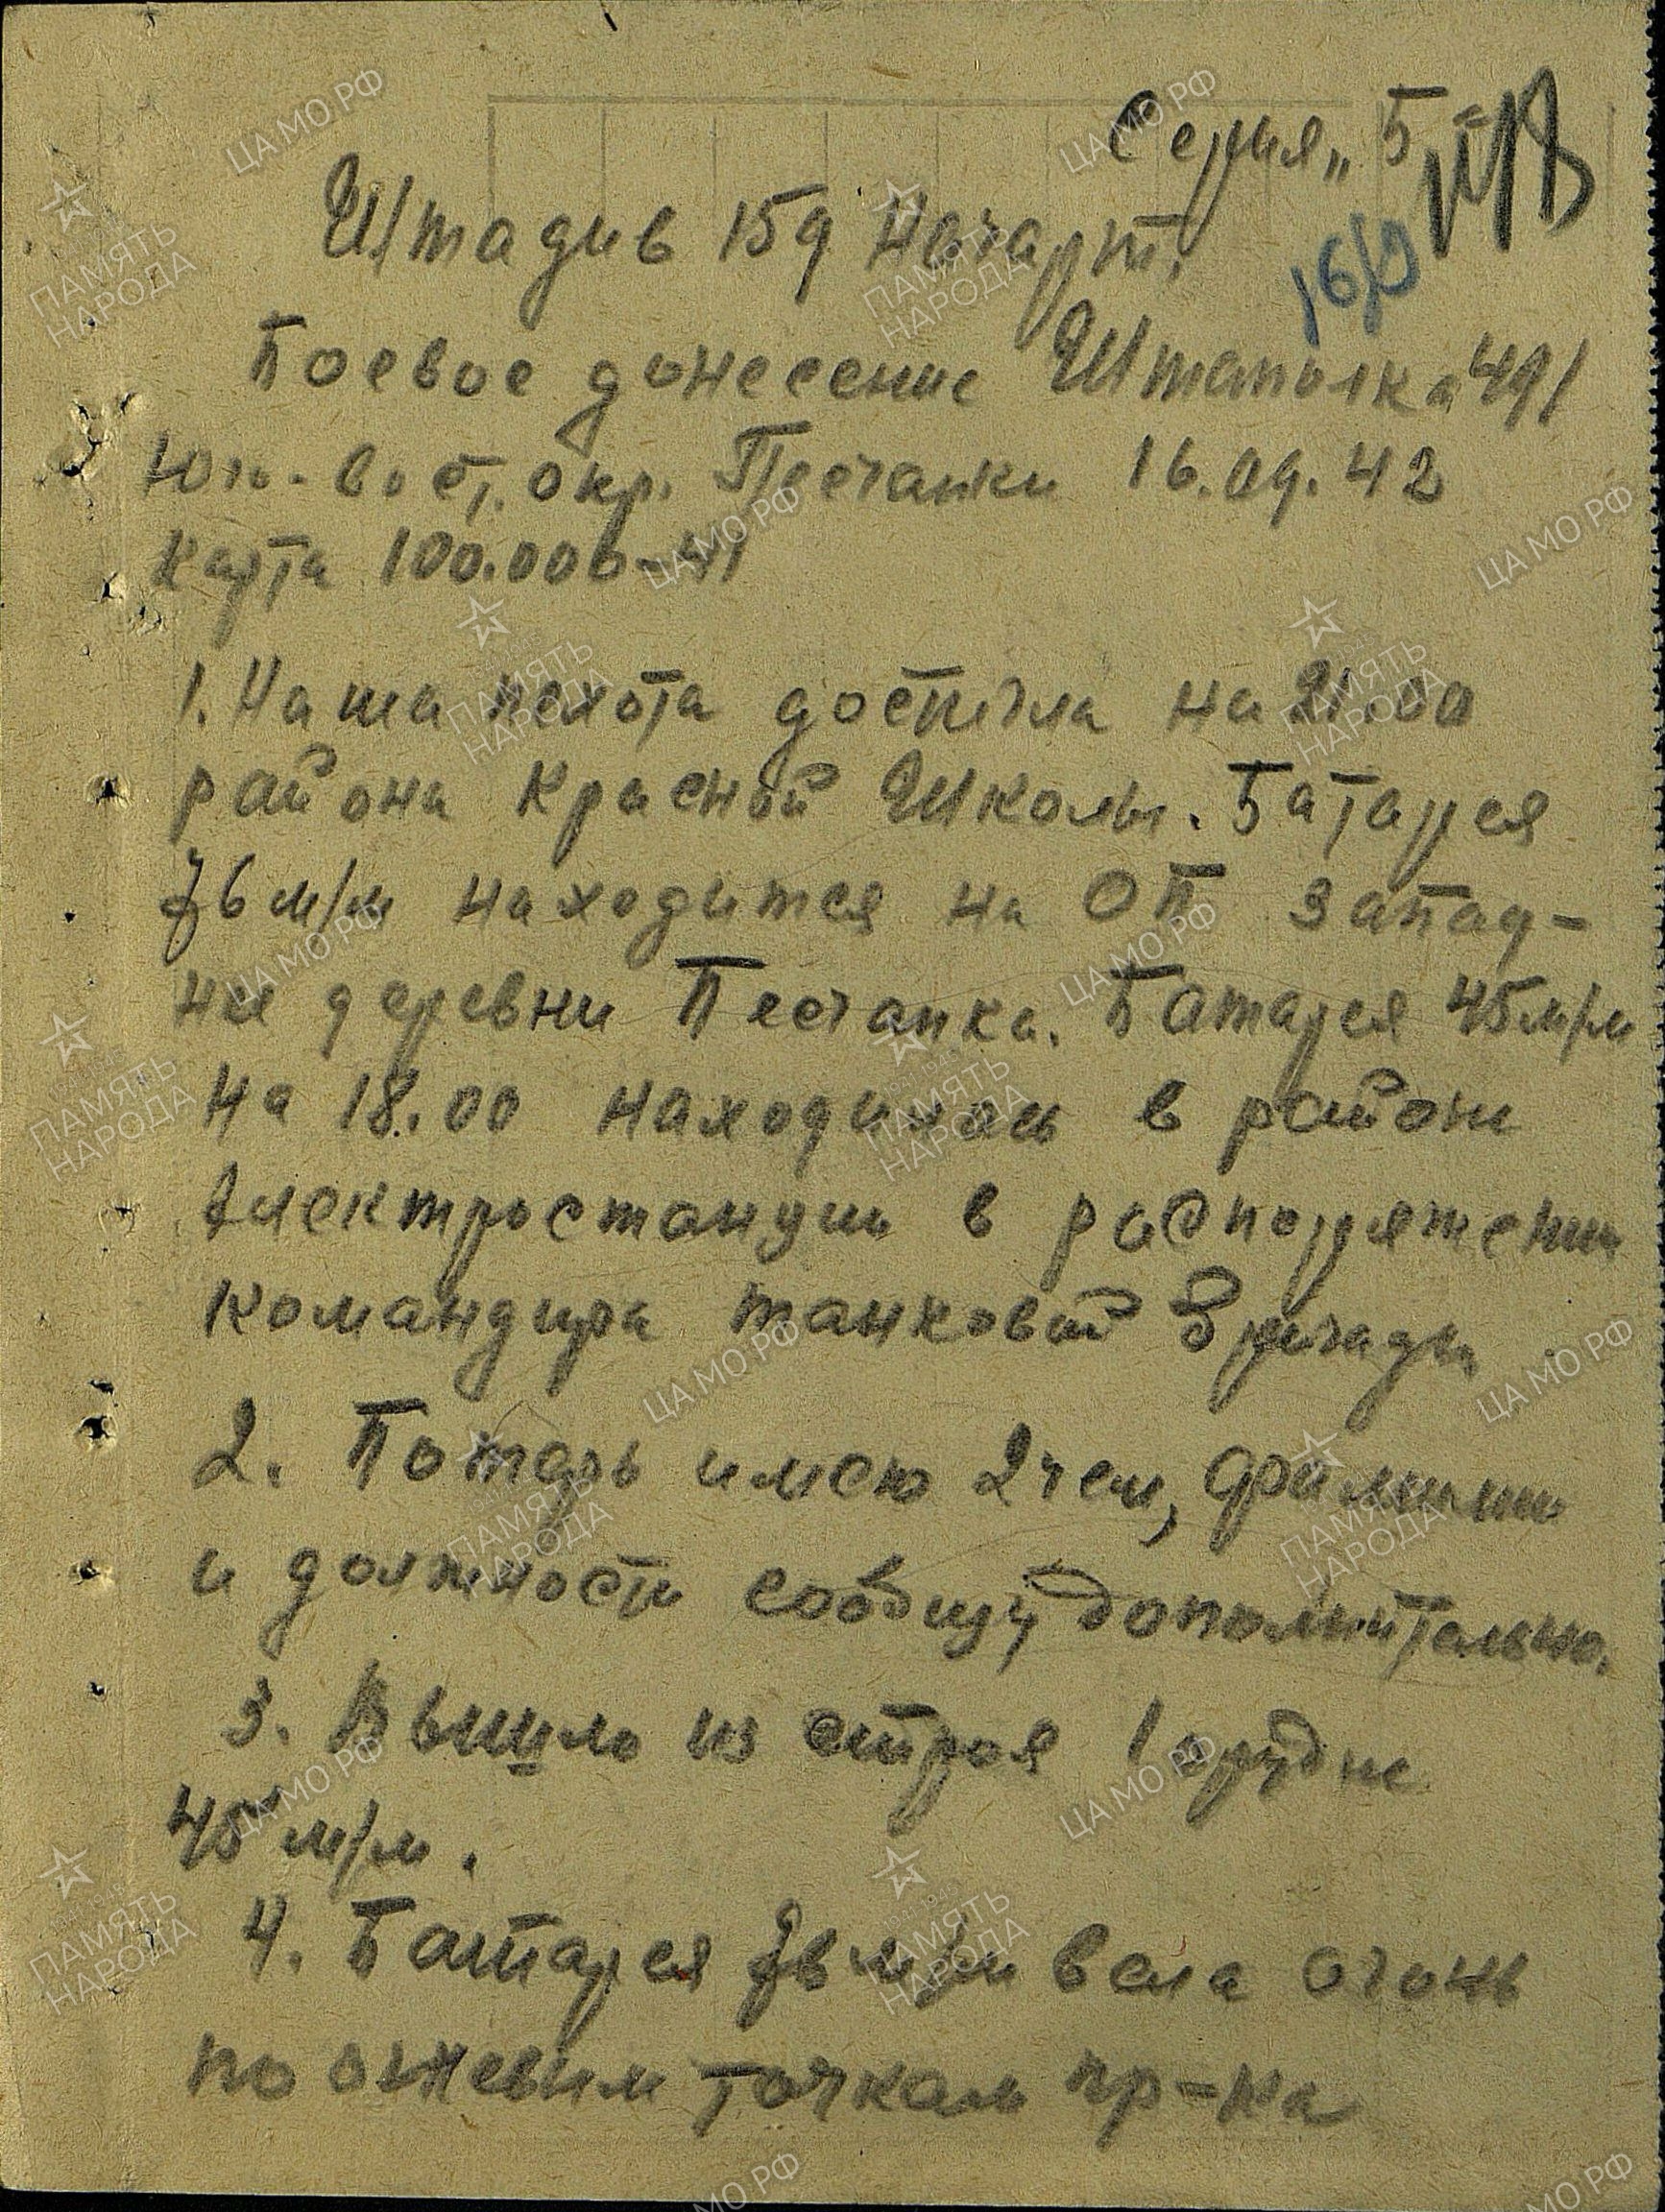 Серия „Б“
Штадив 159 Начарт.
16/9
Боевое донесение Штаполка 491
Юго-Вост. окр. Песчанки 16.09.42
Карта 100.000-41
1. Наша пехота достигла на 21.00
района Красной Школы. Батарея
76 м/м находится на ОП запад-
нее деревни Песчанка. Батарея 45 м/м
на 18.00 находилась в районе
Электростанции в распоряжении
командира танковой Бригады
2. Потерь имею 2 чел, фамилии
и должности сообщу дополнительно.
3. Вышло из строя 1 орудие
45 м/м.
4. Батарея 76 м/м вела огонь
по огневым точкам пр-ка
ЦА МО РФ
ПАМЯТЬ
НАРОДА